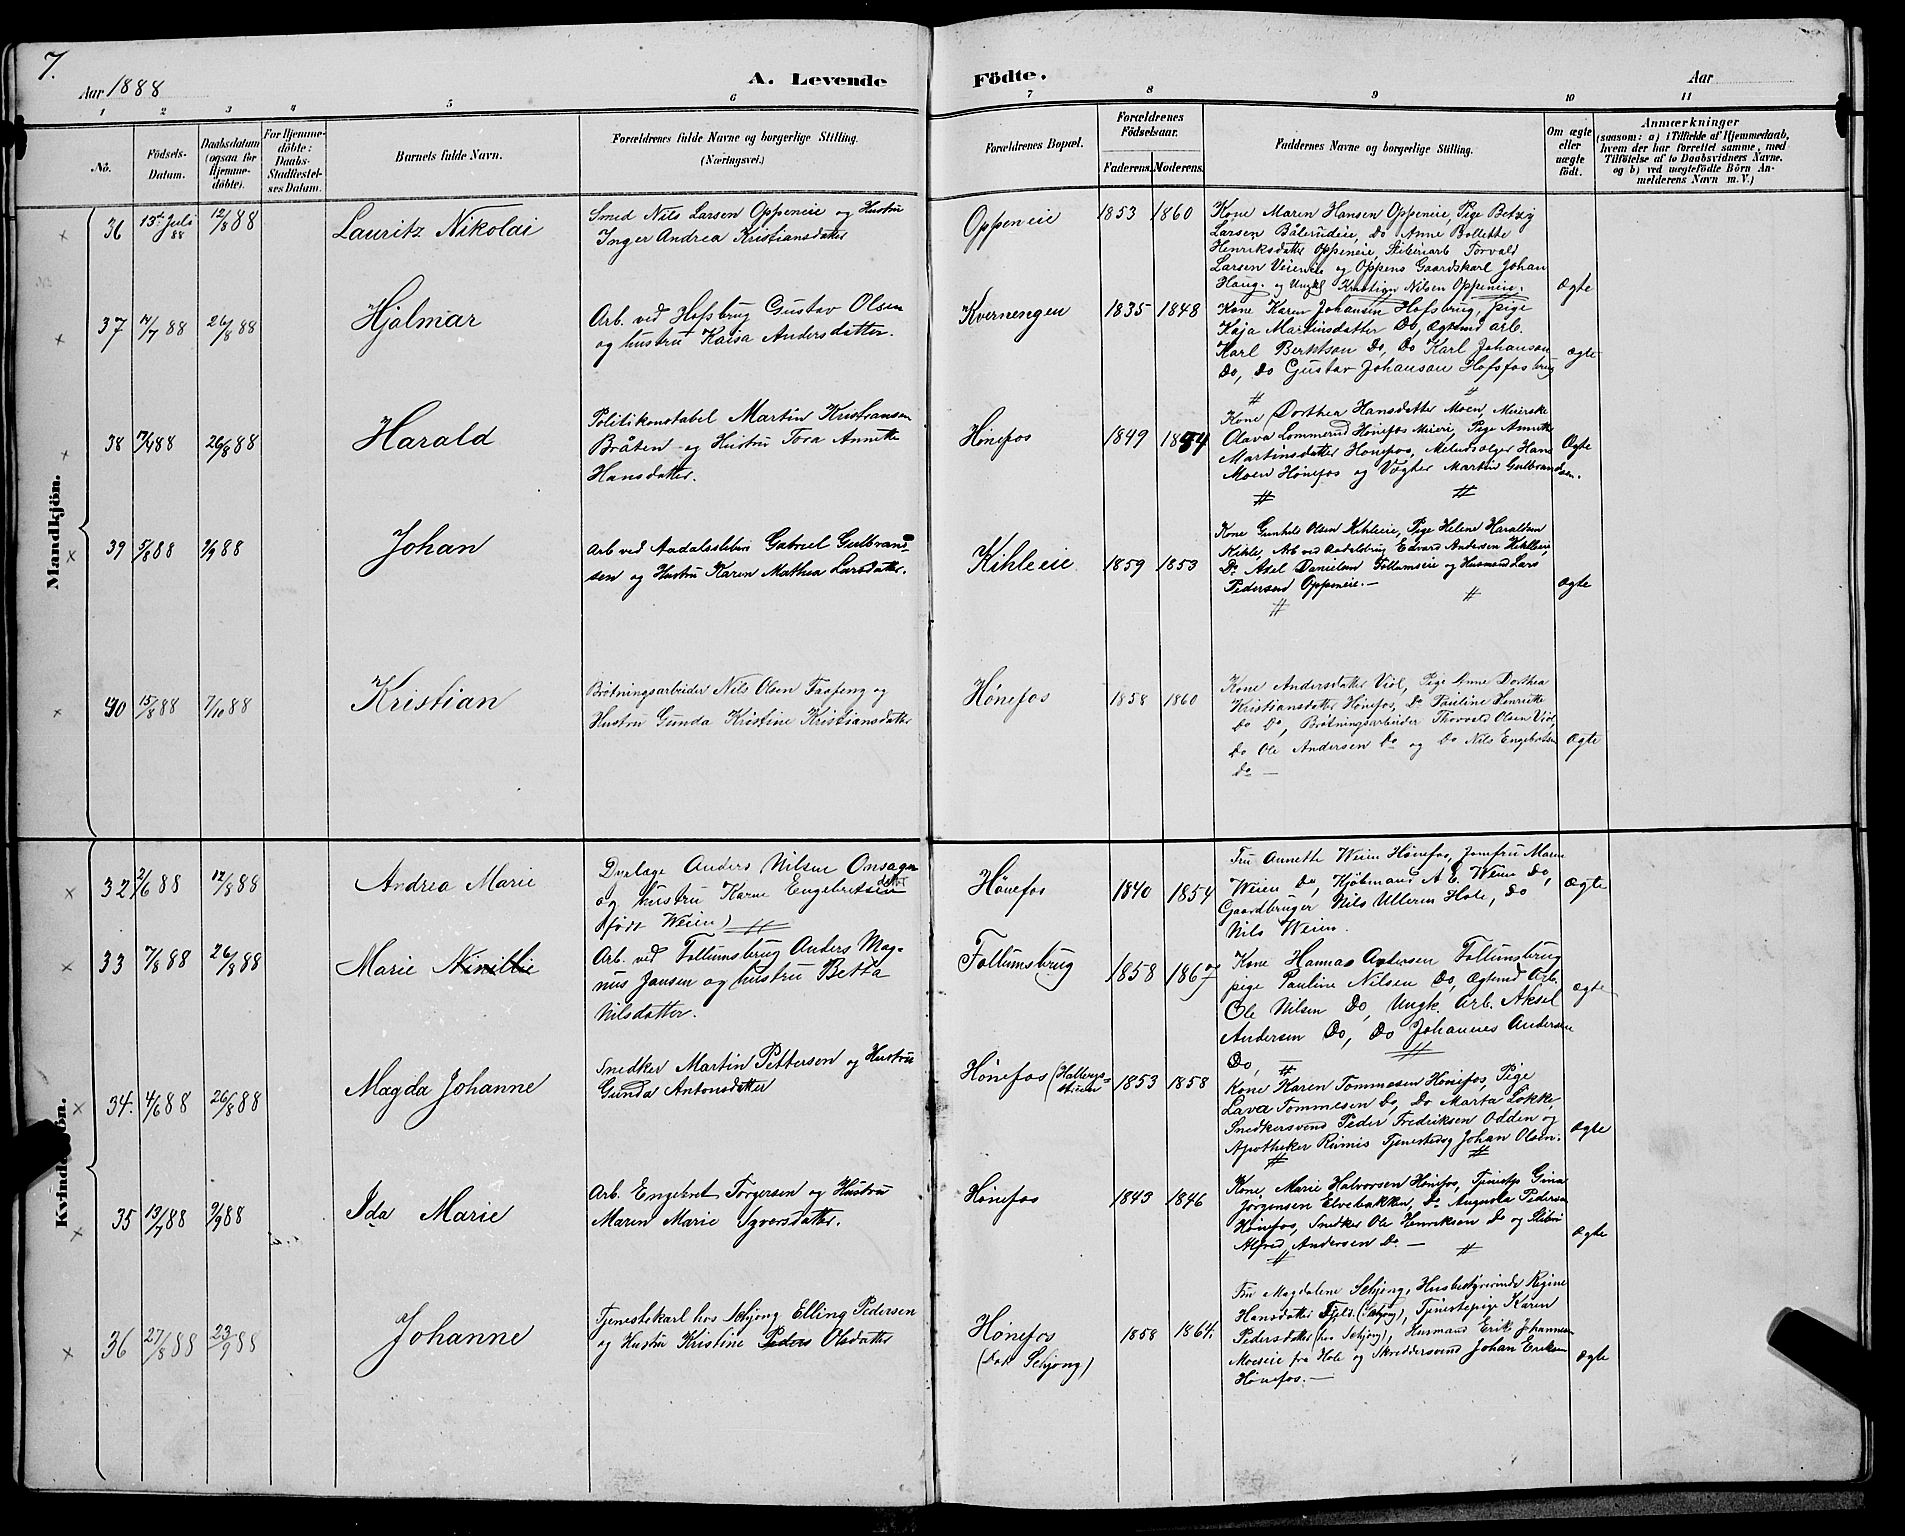 7.
Aar 1888
A. Levende
Födte.
Aar
1 2 3 4 5 6 7 8 9 10 11
No.
Födsels-
Datum.
Daabsdatum
(ogsaa for
Hjemme-
döbte).
For Hjemme-
döbte:
Daabs-
Stadfæstel-
ses Datum.
Barnets fulde Navn.
Forældrenes fulde Navne og borgerlige Stilling.
(Næringsvei.)
Forældrenes Bopæl.
Forældrenes
Födselsaar.
Faderens. Moderens.
Faddernes Navne og borgerlige Stilling.
Om ægte
eller
uægte
födt.
Anmærkninger
(saasom: a) i Tilfælde af Hjemmedaab,
hvem der har forrettet samme, med
Tilföielse af to Daabsvidners Navne,
og b) ved uægtefödte Börn An-
melderens Navn m. V.)
Mandkjön.
36 13de Juli 88 12/8 88
Lauritz Nikolai
Smed Nils Larsen Oppeneie og Hustru
Inger Andrea Kristiansdatter
Oppeneie
1853 1860
Kone Maren Hansen Oppeneie, Pige Betzy
Larsen Bålerudeie, Do Anne Bollette
Henriksdatter Oppeneie, Sliberiarb Torvald
Larsen Veieneie og Oppens Gaardskarl Johan
Haug og Ungkl Kristian Nilsen Oppeneie.
Ægte
37 /7 88 26/8 88
Hjalmar
Arb. ved Hofsbrug Gustav Olsen
og hustru Kaisa Andersdatter.
Kvernengen
1835 1848
Kone Karen Johansen Hofsbrug, pige
Kaja Martinsdatter Do, Ægtemd arb.
Karl Berntson Do, Do Karl Johanson
Do, Do Gustav Johanson Hofsfos brug
Ægte
38 7/4 88 26/8 88
Harald
Politikonstabel Martin Kristiansen
Bråten og Hustru Tora Annette
Hansdatter.
Hønefos
1849 1854
Kone Dorthea Hansdatter Moen, Meierske
Olava Lommerud Hønefos Meieri, Pige Annette
Martinsdatter Hønefos, Meludsalger Hans
Moen Hønefos og Vægter Martin Gulbrandsen.
Ægte
39 5/8 88 2/9 88
Johan
Arb ved Aadalssliberi Gabriel Gulbrand-
sen og Hustru Karen Mathea Larsdatter.
Kihleeie
1859 1853
Kone Gunhild Olsen Kihleeie, Pige Helene Haraldsen
Kihle, Arb ved Aadalsbrug Edvard Andersen Kihleeie
Do Axel Danielsen Follumseie og Husmand Lars
Pedersen Oppeneie.
Ægte
40 15/8 88 7/10 88
Kristian
Brøtningsarbeider Nils Olsen Faafeng og
Hustru Gunda Kristine Kristiansdatter
Hønefos
1858 1860
Kone Andersdatter Viol, Pige Anne Dorthea
Kristiansdatter Hønefos, Do Pauline Henriette
Do Do, Brøtningsarbeider Thorvald Olsen Viol,
Do Ole Andersen Do og Do Nils Engebretsen
Do
Ægte
Kvindekjön.
32 2/6 88 12/8 88
Andrea Marie
Dyrlæge Anders Nilsen Onsager
og hustru Karne Engebretsen
(født Weien)
Hønefos
1840 1854
Fru Annette Weien Hønefos, Jomfru Maren
Weien Do, Kjøbmand A. E. Weien Do,
Gaardbruger Nils Ullern Hole, Do
Nils Weien.
Ægte
33 7/8 88 26/8 88
Marie
Arb. ved Follumsbrug Anders Mag-
nus Jansen og hustru Betta
Nilsdatter.
Follumsbrug
1858 1867
Kone Hanna Andersen Follumsbrug
pige Pauline Nilsen Do, Ægtemd Arb.
Ole Nilsen Do, Ungk. Arb. Aksel
Andersen Do, Do Johannes Andersen
Do,
Ægte
34. 4/6 88 26/8 88
Magda Johanne
Snedker Martin Pettersen og Hustru
Gunda Antonsdatter
Hønefos (Hallings-
stuen
1853 1858
Kone Karen Tommesen Hønefos, Pige
Lava Tommesen Do, Do Marta Løkke,
Snedkersvend Peder Fredriksen Odden og
Apotheker Riimis Tjenestedrg Johan Olsen.
Ægte
35 13/7 88 9/9 88
Ida Marie
Arb. Engebret Torgersen og Hustru
Maren Marie Syversdatter.
Hønefos
1843 1846
Kone Marie Halvorsen Hønefos, Tjenstp Gina
Jørgensen Elvebakken, Do Augusta Pedersen
Hønefos, Snedker Ole Henriksen Do og Sliberi
Alfred Andersen Do.
Ægte
36 27/8 88 23/9 88
Johanne
Tjenestekarl hos Schjong Elling Pedersen
og Hustru Kristine Peders Olsdatter
Hønefos
(Dok Schjong)
1858 1864.
Fru Magdalene Schjong, Husbestyrerinde Regine
Hansdatter Fjeld (Schjong), Tjenestepige Karen
Pedersdatter (hos Schjong), Husmand Erik Johannesen
Moeseie fra Hole og Skreddersvend Johan Eriksen
Hønefos.
Ægte